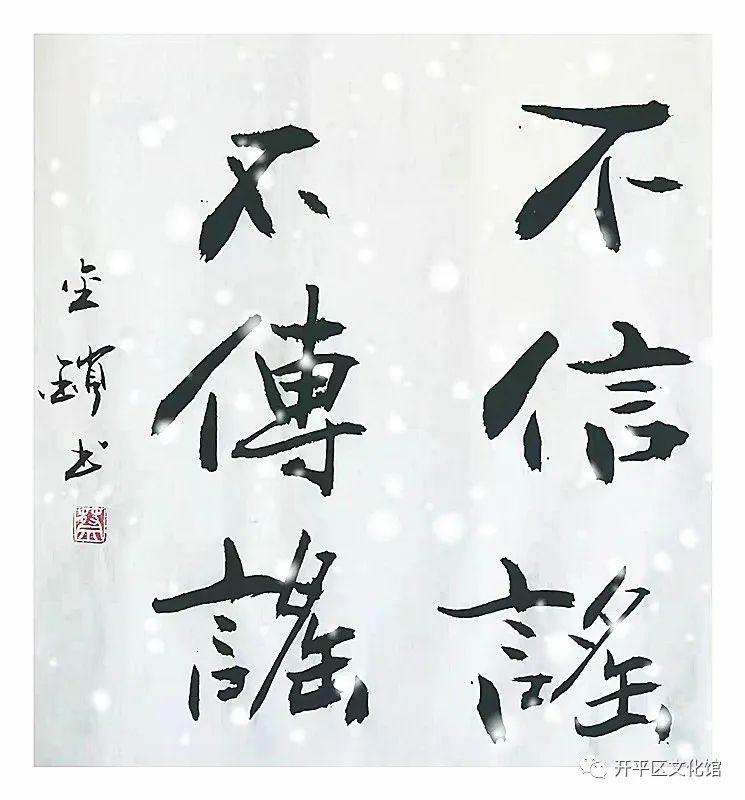 不信謠
不傳謠
金鎖书
开平区文化馆